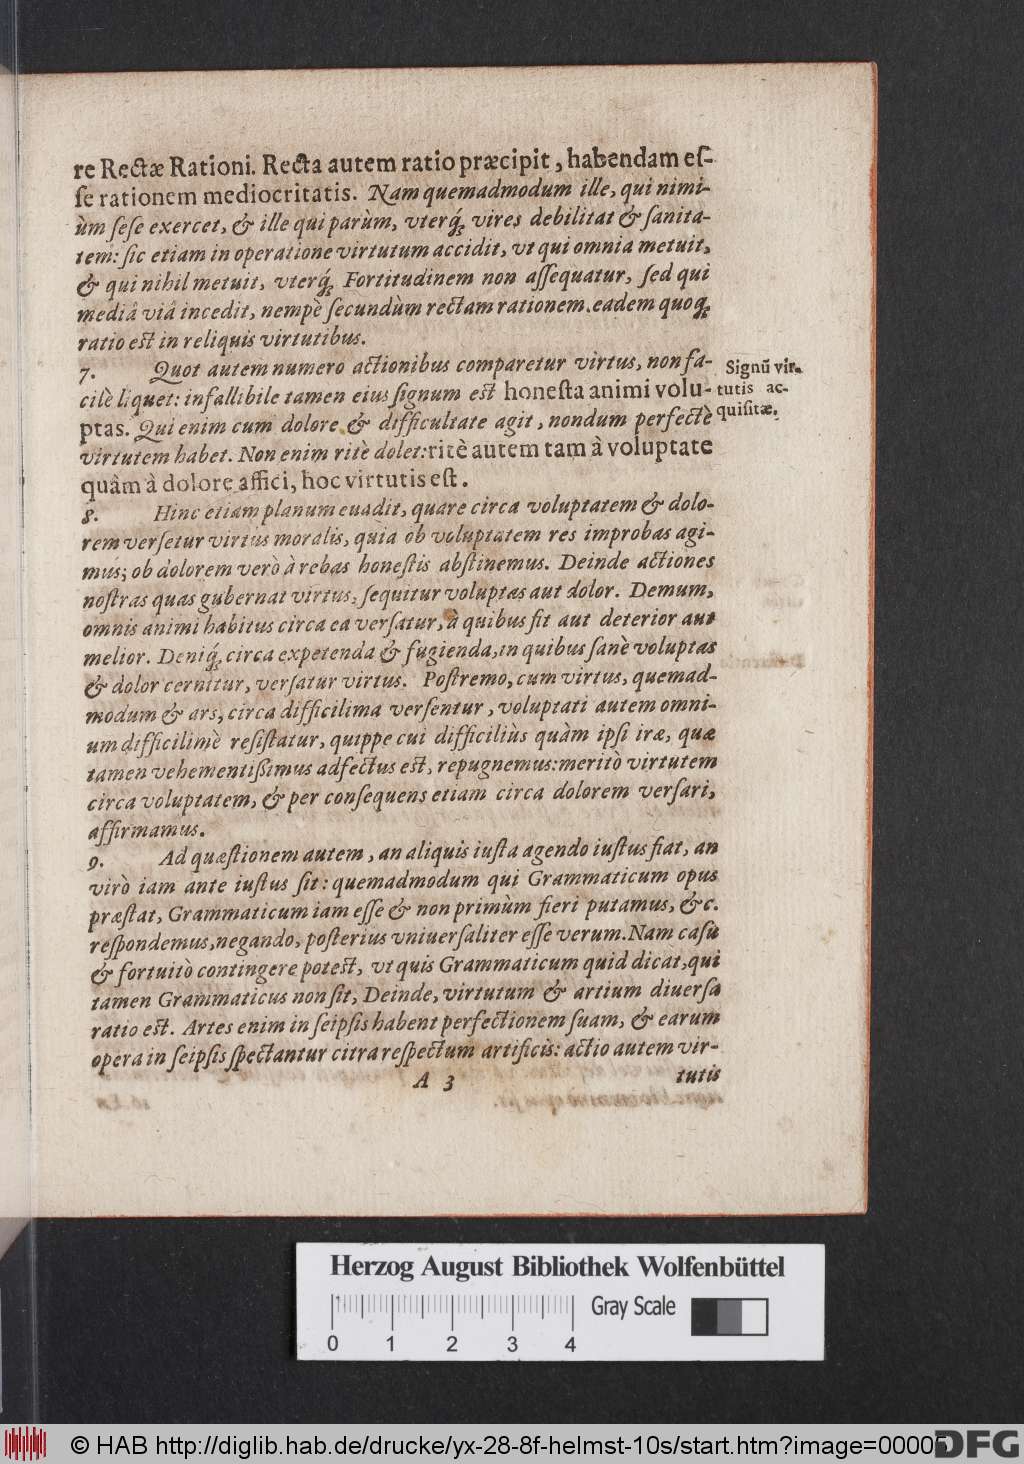 re Rectæ Rationi. Recta autem ratio præcipit, habendam eſ-
ſe rationem mediocritatis. Nam quemadmodum ille, qui nimi-
ùm ſeſe exercet, & ille qui parùm, vterq́; vires debilitat & ſanita-
tem: ſic etiam in operatione virtutum accidit, vt qui omnia metuit,
& qui nihil metuit, vterq́; Fortitudinem non aſſequatur, ſed qui
mediâ viâ incedit, nempè ſecundùm rectam rationem. eadem quoq;
ratio eſt in reliquis virtutibus.
7. Quot autem numero actionibus comparetur virtus, non fa-
cilè liquet: infallibile tamen eius ſignum eſt honeſta animi volu-
ptas. Qui enim cum dolore & difficultate agit, nondum perfectè
virtutem habet. Non enim ritè dolet: ritè autem tam à voluptate
quâm à dolore affici, hoc virtutis eſt.
Signū vir-
tutis ac-
quiſitæ.
8. Hinc etiam planum euadit, quare circa voluptatem & dolo-
rem verſetur virtus moralis, quia ob voluptatem res improbas agi-
mus; ob dolorem verò à rebas honeſtis abſtinemus. Deinde actiones
noſtras quas gubernat virtus, ſequitur voluptas aut dolor. Demum,
omnis animi habitus circa ea verſatur, à quibus fit aut deterior aut
melior. Deniq́; circa expetenda & fugienda, in quibus ſanè voluptas
& dolor cernitur, verſatur virtus. Poſtremo, cum virtus, quemad-
modum & ars, circa difficilima verſentur, voluptati autem omni-
um difficilimè reſiſtatur, quippe cui difficiliùs quàm ipſi iræ, quæ
tamen vehementiſſimus adfectus eſt, repugnemus: meritò virtutem
circa voluptatem, & per conſequens etiam circa dolorem verſari,
affirmamus.
9. Ad quæſtionem autem, an aliquis iuſta agendo iuſtus fiat, an
virò iam ante iuſtus ſit: quemadmodum qui Grammaticum opus
præſtat, Grammaticum iam eſſe & non primùm fieri putamus, &c.
reſpondemus, negando, poſterius vniuerſaliter eſſe verum. Nam caſu
& fortuitò contingere poteſt, vt quis Grammaticum quid dicat, qui
tamen Grammaticus non ſit, Deinde, virtutum & artium diuerſa
ratio eſt. Artes enim in ſeipſis habent perfectionem ſuam, & earum
opera in ſeipſis ſpectantur citra reſpectum artificis: actio autem vir-
A 3 tutis
Herzog August Bibliothek Wolfenbüttel
Gray Scale
0 1 2 3 4
© HAB http://diglib.hab.de/drucke/yx-28-8f-helmst-10s/start.htm?image=00005
DFG